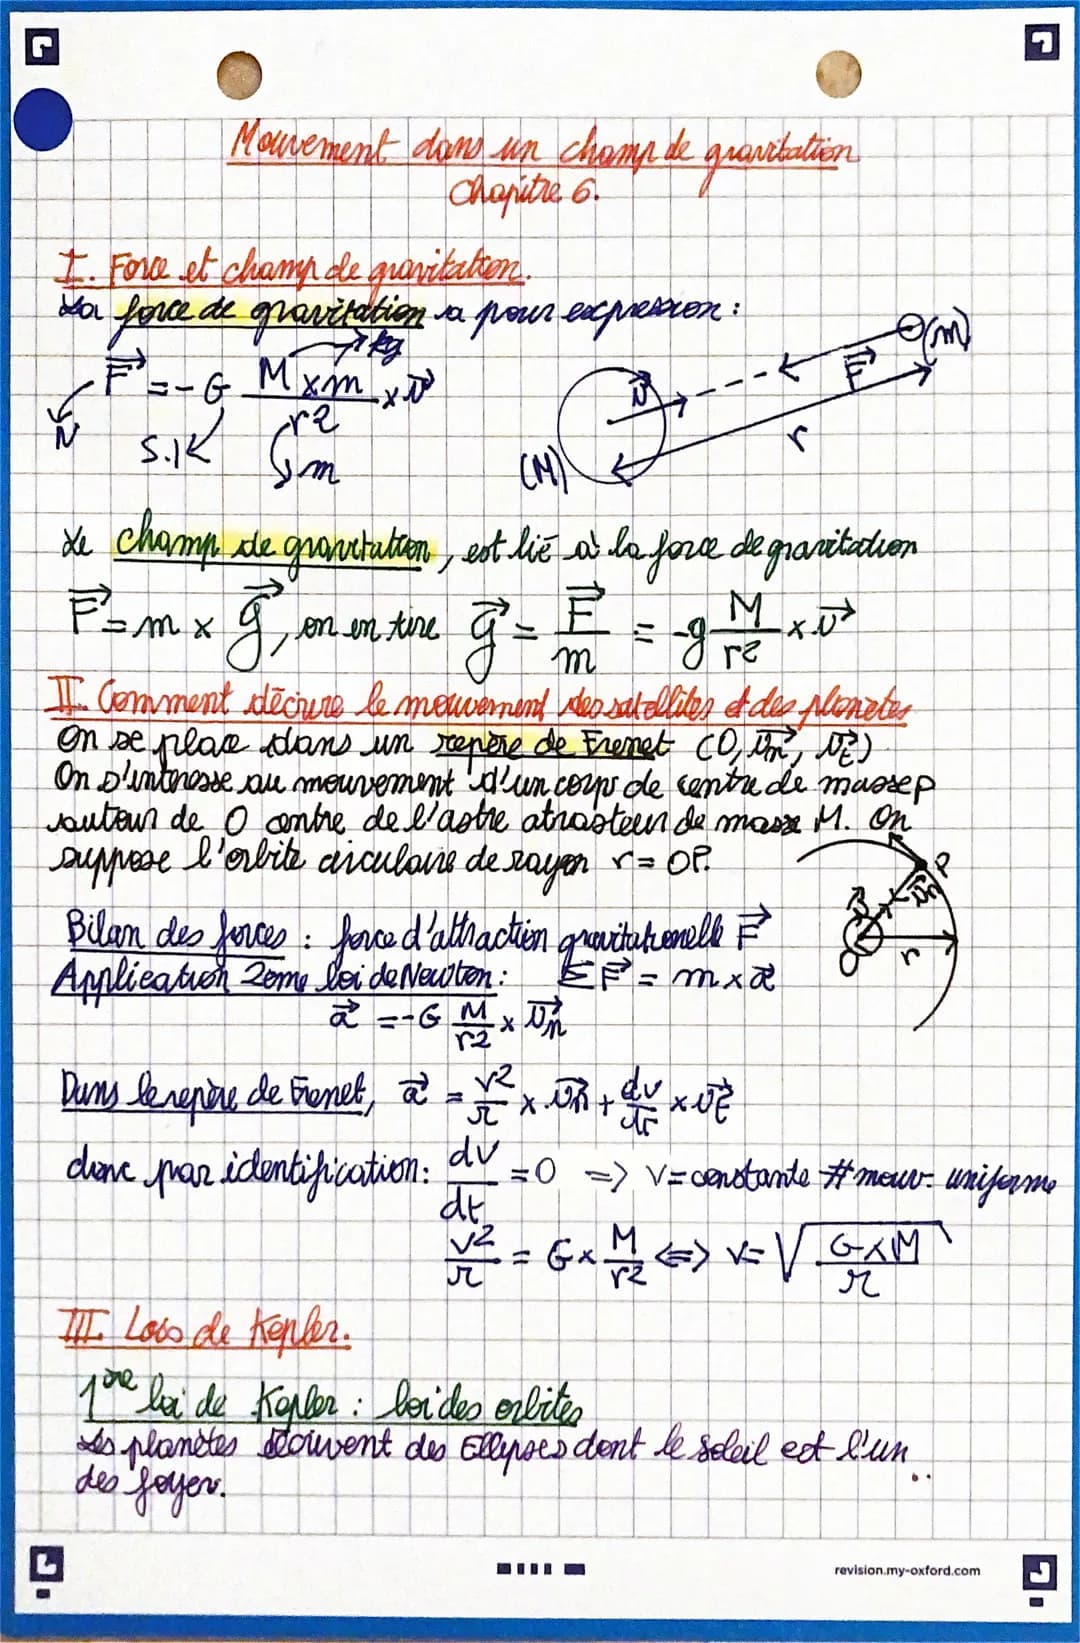 Mouvement dans un champ de gravitation
Chapitre 6.
I. Force et champ de gravitation.
La force de gravitation a pour expression :
F = -G M x m / r2 x u
kg
N
S.I
m
(M)
u
F
(m)
r
Le champ de gravitation, est lié à la force de gravitation
F = m x g, on en tire g = F / m = -g M / r² x u
II. Comment décrire le mouvement des satellites et des planètes
On se place dans un repère de Frenet (O, Un, Ut)
On s'interesse au mouvement d'un corps de centre de masse P
autour de O centre de l'astre attracteur de masse M. On
suppose l'orbite circulaire de rayon r = OP.
P
Un
O
r
Bilan des forces : force d'attraction gravitationelle F
Application 2ème loi de Newton : ΣF = m x a
a = -G M / r2 x Un
Dans le repère de Frenet, a = v2 / r x Un + dv / dt x Ut
donc par identification: dv / dt = 0 => v = constante # mouv. uniforme
v2 / r = G x M / r2 <=> v = √ G x M / r
III. Lois de Kepler.
1ère loi de Kepler : loi des orbites
Les planètes décrivent des Ellipses dont le soleil est l'un
des foyer.
revision.my-oxford.com